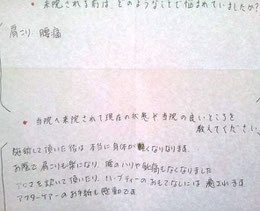 • 来院される前は、どのようなことで悩まれていましたか?
肩こり 腰痛
• 当院へ来院されて現在の状態や当院の良いところを
教えてください。
施術して頂いた後は本当に身体が軽くなります
お陰で肩こりも楽になり 腰のハリや 痛もなくなりました
を聴いて頂いたり、ハーブティーのおもてなしには 癒されます
アフターケアーのお手紙も感動です